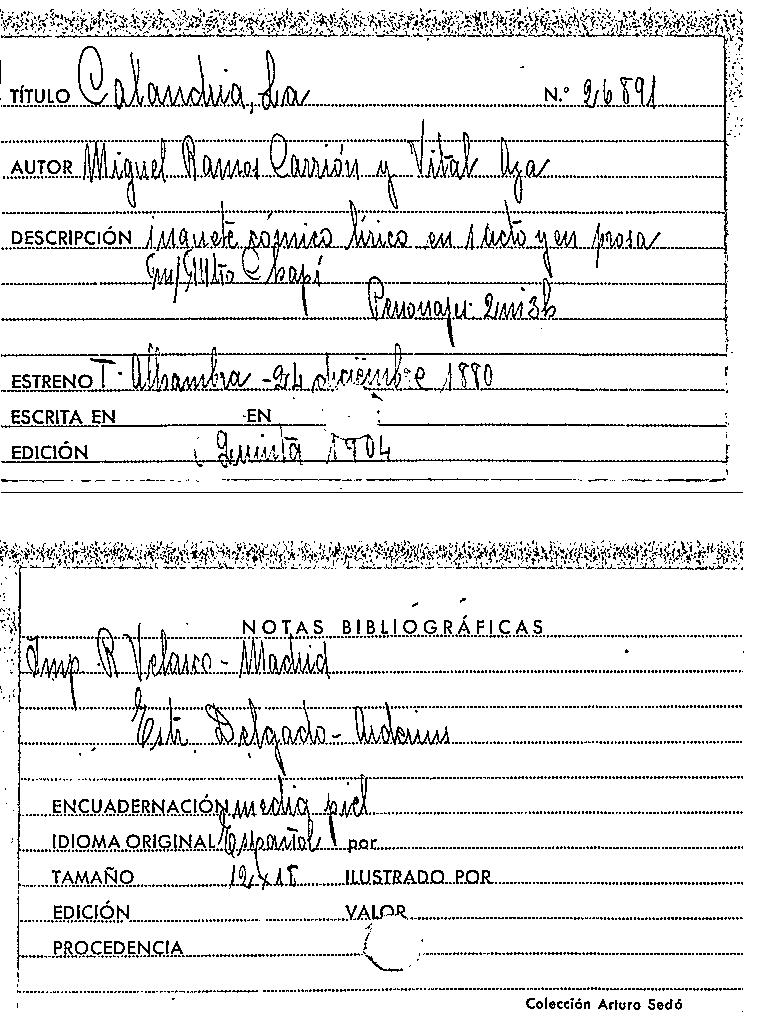 TÍTULO Calandria, La N.º 26891
AUTOR Miguel Ramos Carrión y Vital Aza
DESCRIPCIÓN juguete cómico lírico en 1 acto y en prosa
Mtro Chapí
Personajes: 2m i 3h
ESTRENO T. Alhambra - 24 diciembre 1880
ESCRITA EN EN
EDICIÓN Quinta 1904
NOTAS BIBLIOGRÁFICAS
Imp R Velasco - Madrid
Delgado - Arderius
ENCUADERNACIÓN media piel
IDIOMA ORIGINAL Español por
TAMAÑO 12x18 ILUSTRADO POR
EDICIÓN VALOR
PROCEDENCIA
Colección Arturo Sedó